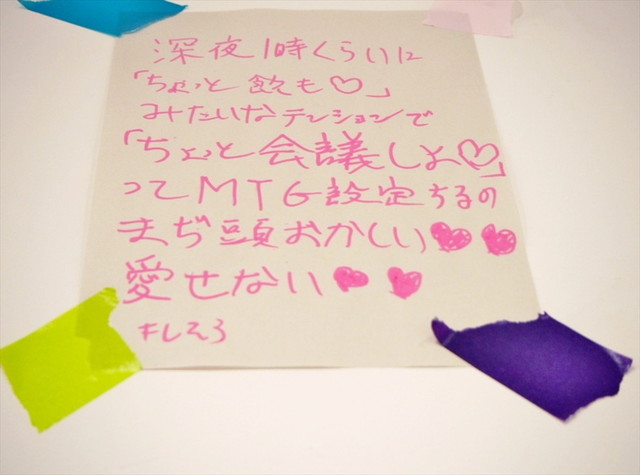 深夜1時くらいに
「ちょっと飲も♡」
みたいなテンションで
「ちょっと会議しよ♡」
ってMTG設定するの
まぢ頭おかしい♥♥
愛せない♥♥
キしえろ